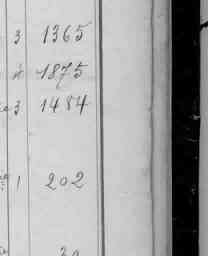 3 1365
1875
3 1484
1 202